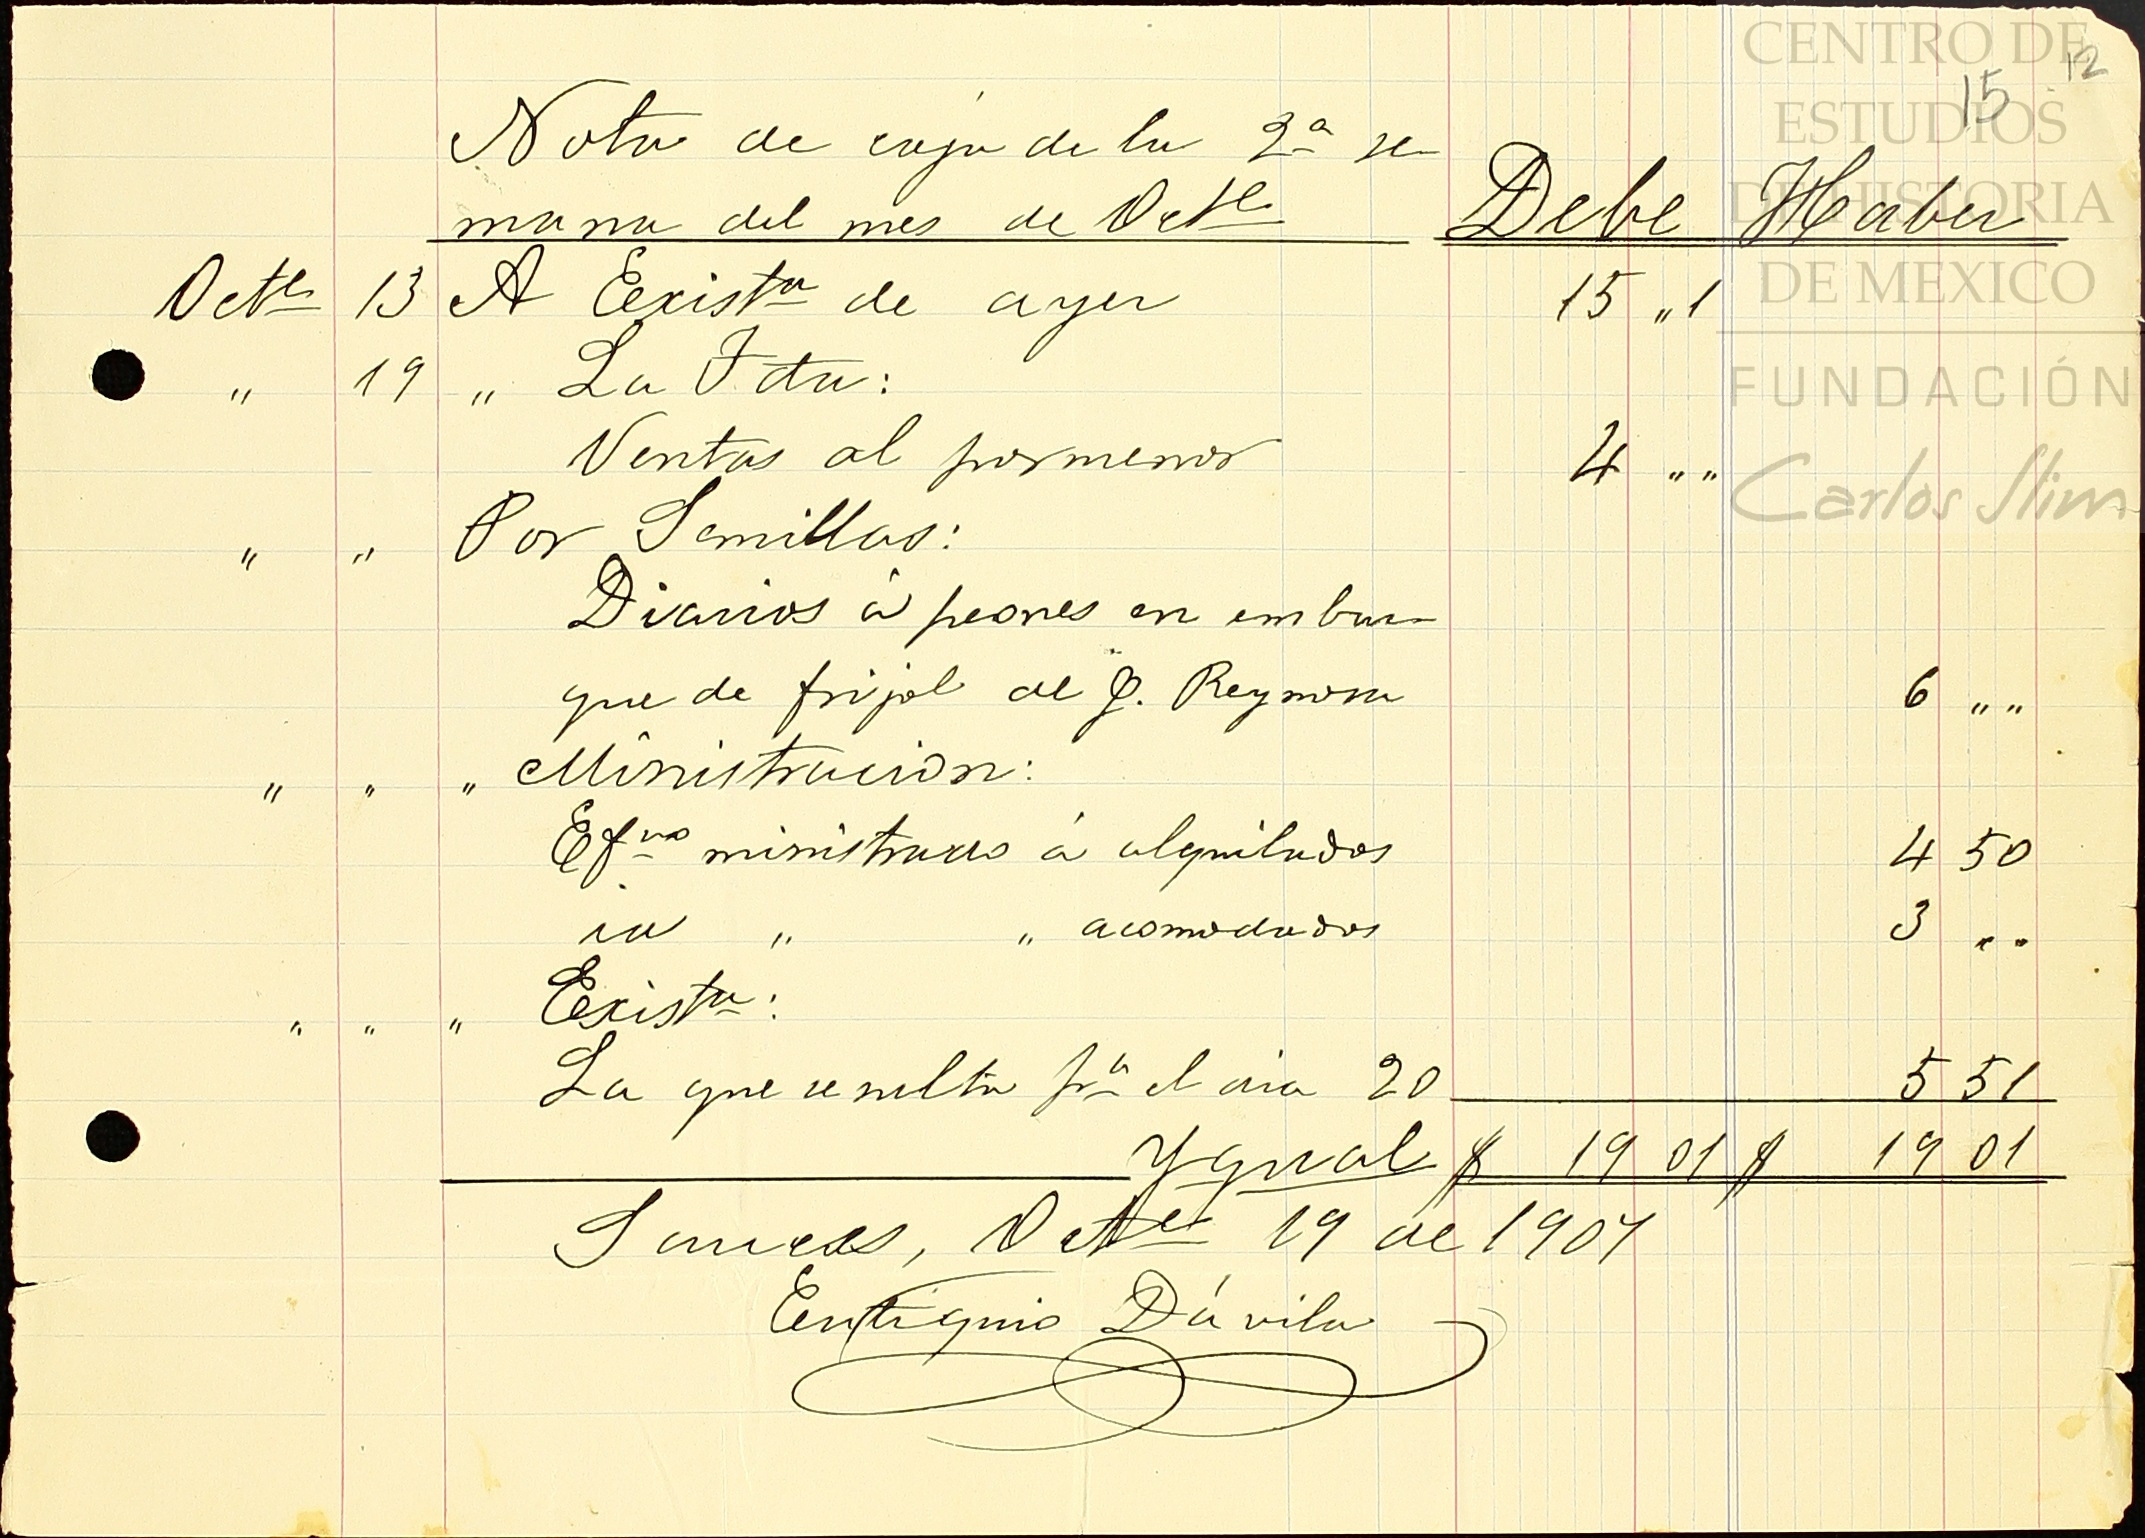 CENTRO DE
ESTUDIOS
DE HISTORIA
DE MEXICO
FUNDACIÓN
Carlos Slim
12
15
Nota de caja de la 2ª se
mana del mes de Octe Debe Haber
Octe 13 A Existª de ayer 15 „1
„ 19 „ La Fda:
Ventas al pormenor 4 „„
„ „ Por Semillas:
Diarios á peones en embar
que de frijol de Reynosa 6 „„
„ „ „ Ministracion:
Efvo ministrado á alquilados 4 50
id „ „ acomodados 3 „„
„ „ „ Existª:
La que resulta pª el dia 20 5 51
Ygual $ 19 01 $ 19 01
Sauces, Octe 19 de 1907
Eutiquio Dávila